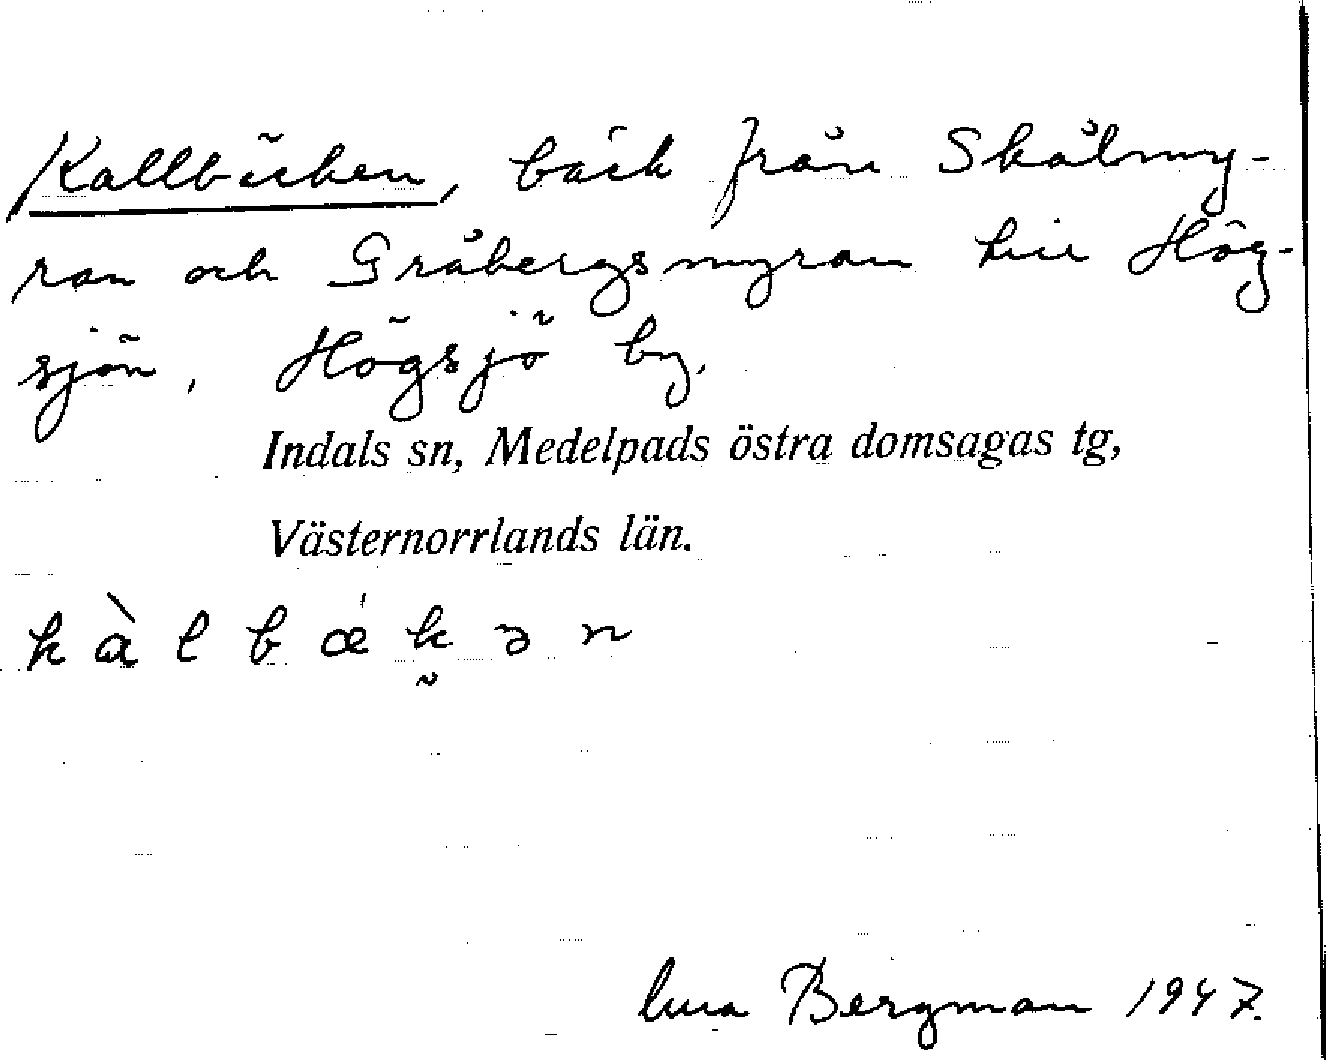 Kallbäcken, bäck från Skålmy-
ran och Gråbergsmyran till Hög-
sjön, Högsjö by.
Indals sn, Medelpads östra domsagas tg,
Västernorrlands län.
kàlbǽk̮ən
Bergman 1947.